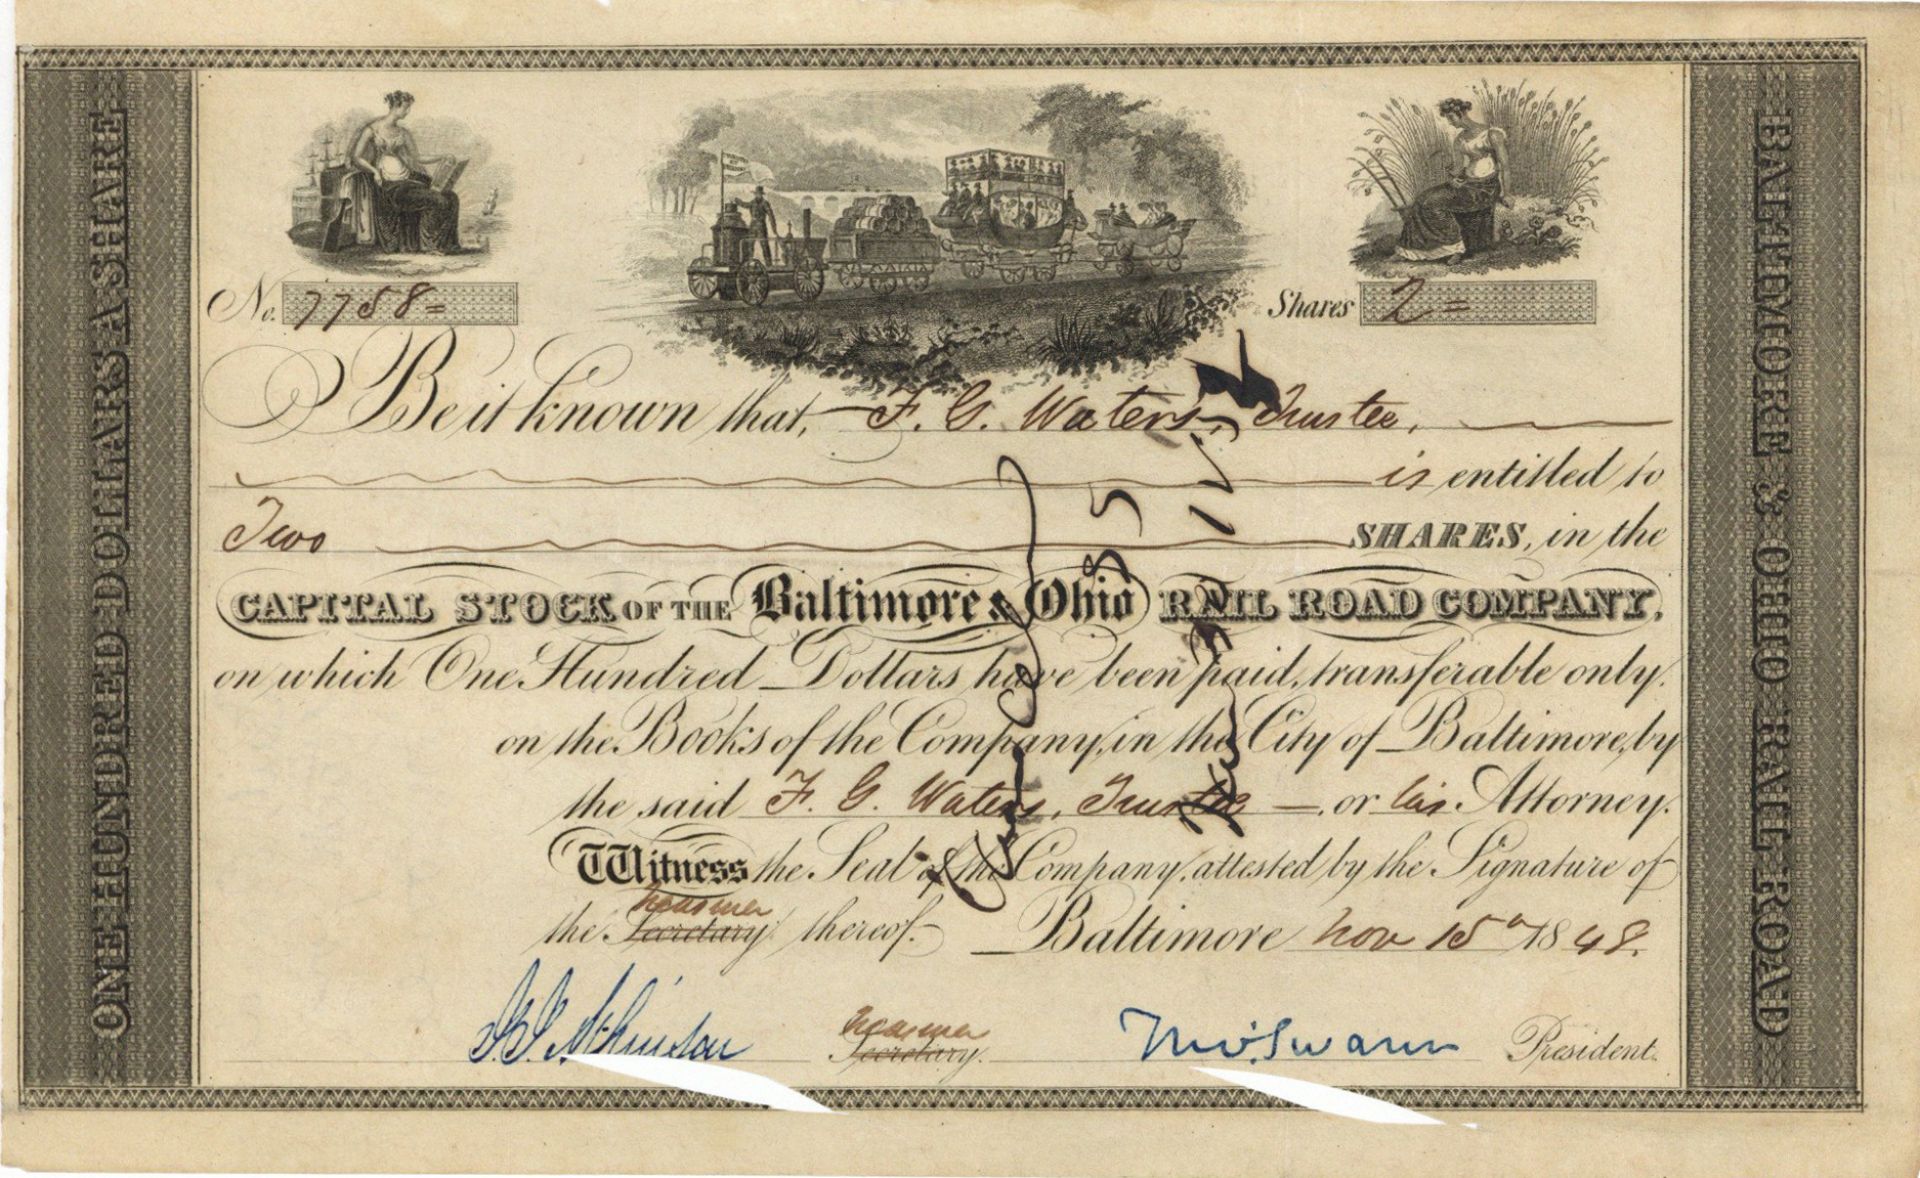 ONE HUNDRED DOLLARS A SHARE
BALTIMORE & OHIO RAIL ROAD
No. 7758=
Shares 2=
Be it known that, F. G. Waters, Trustee,
is entitled to
Two SHARES, in the
CAPITAL STOCK OF THE Baltimore & Ohio RAIL ROAD COMPANY,
on which One Hundred Dollars have been paid, transferable only
on the Books of the Company, in the City of Baltimore, by
the said F. G. Waters, Trustee or his Attorney.
Witness the Seal of the Company, attested by the Signature of
Treasurer
the Secretary thereof. Baltimore Nov 15th 1848.
J. J. Atkinson Treasurer Secretary. Tho. Swann President.
Cancelled